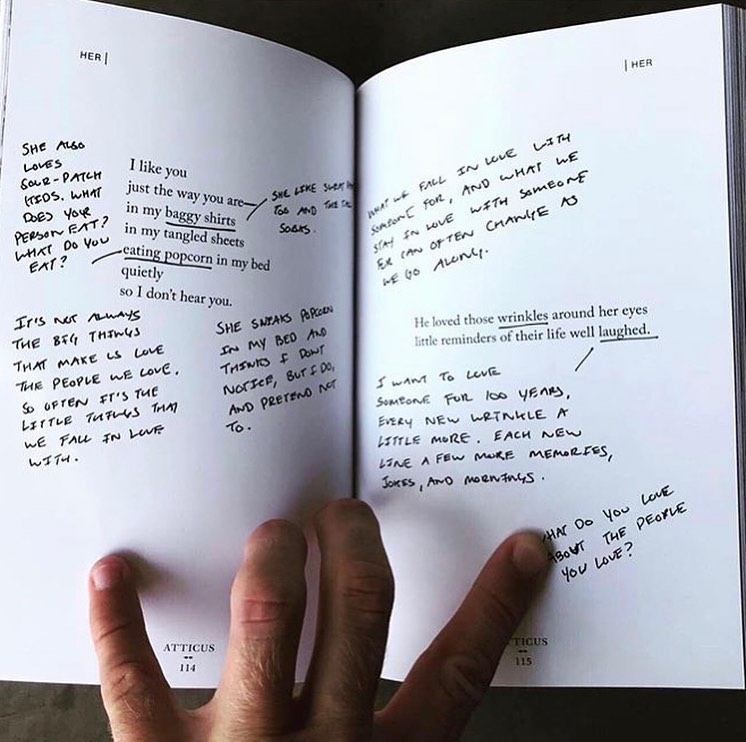 HER |
SHE ALSO
LOVES
SOUR-PATCH
KIDS. WHAT
DOES YOUR
PERSON EAT?
WHAT DO YOU
EAT?
I like you
just the way you are—
in my baggy shirts
in my tangled sheets
eating popcorn in my bed
quietly
so I don't hear you.
SHE LIKE
TOO AND THE
SOCKS.
IT'S NOT ALWAYS
THE BIG THINGS
THAT MAKE US LOVE
THE PEOPLE WE LOVE.
SO OFTEN IT'S THE
LITTLE THINGS THAT
WE FALL IN LOVE
WITH.
SHE SNEAKS POPCORN
IN MY BED AND
THINKS I DON'T
NOTICE, BUT I DO,
AND PRETEND NOT
TO.
ATTICUS
114
| HER
WHAT WE FALL IN LOVE WITH
SOMEONE FOR, AND WHAT WE
STAY IN LOVE WITH SOMEONE
CAN OFTEN CHANGE AS
WE GO ALONG.
He loved those wrinkles around her eyes
little reminders of their life well laughed.
I WANT TO LOVE
SOMEONE FOR 100 YEARS,
EVERY NEW WRINKLE A
LITTLE MORE. EACH NEW
LINE A FEW MORE MEMORIES,
JOKES, AND MORNINGS.
WHAT DO YOU LOVE
ABOUT THE PEOPLE
YOU LOVE?
TICUS
115